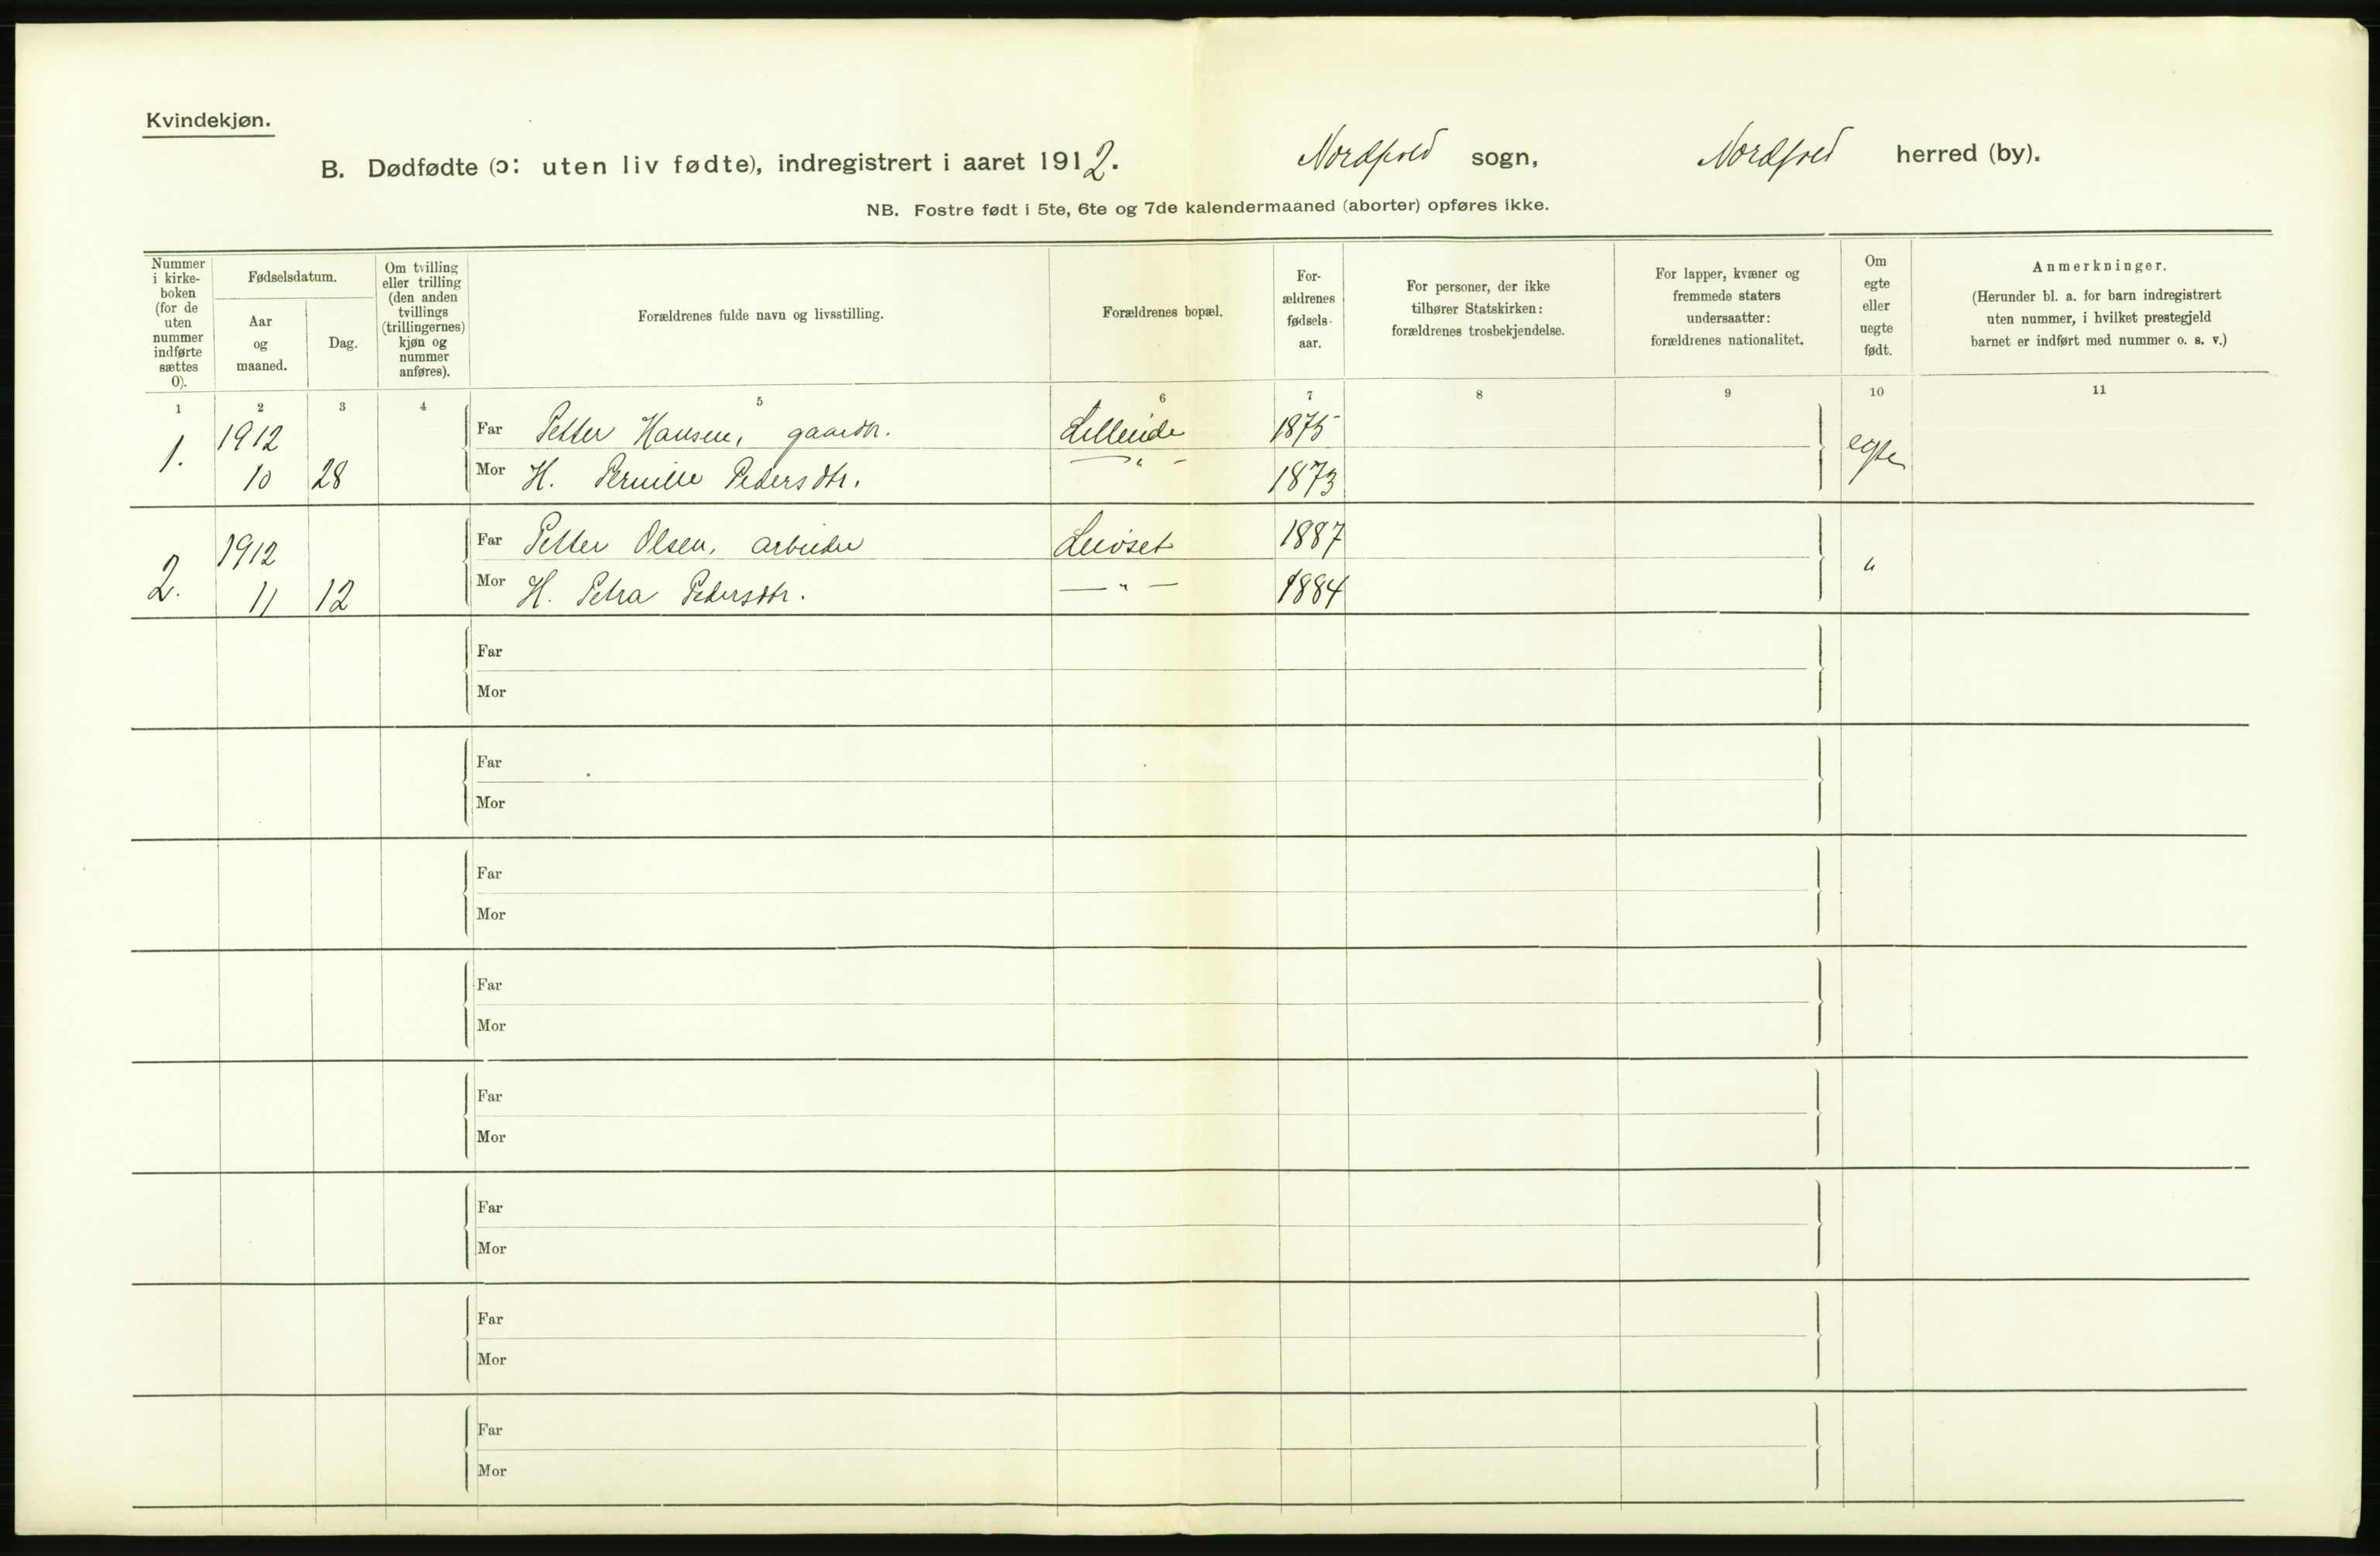 Kvindekjøn.
B. Dødfødte (ɔ: uten liv fødte), indregistrert i aaret 1912. Nordfold sogn, Nordfold herred (by).
NB. Fostre født i 5te, 6te og 7de kalendermaaned (aborter) opføres ikke.
Nummer i kirke-boken (for de uten nummer indførte sættes 0).
Fødselsdatum.
Aar og maaned.
Dag.
Om tvilling eller trilling (den anden tvillings (trillingernes) kjøn og nummer anføres).
Forældrenes fulde navn og livsstilling.
Forældrenes bopæl.
For-ældrenes fødsels-aar.
For personer, der ikke tilhører Statskirken: forældrenes trosbekjendelse.
For lapper, kvæner og fremmede staters undersaatter: forældrenes nationalitet.
Om egte eller uegte født.
Anmerkninger.
(Herunder bl. a. for barn indregistrert uten nummer, i hvilket prestegjeld barnet er indført med nummer o. s. v.)
1 2 3 4 5 6 7 8 9 10 11
1. 1912 Far Petter Hansen, gaardbr. 1875 egte
10 28 Mor H. Pernille Pedersdtr. — " — 1873
2. 1912 Far Petter Olsen, arbeider Leivset 1887 "
11 12 Mor H. Petra Pedersdtr. — " — 1884
Far
Mor
Far
Mor
Far
Mor
Far
Mor
Far
Mor
Far
Mor
Far
Mor
Far
Mor